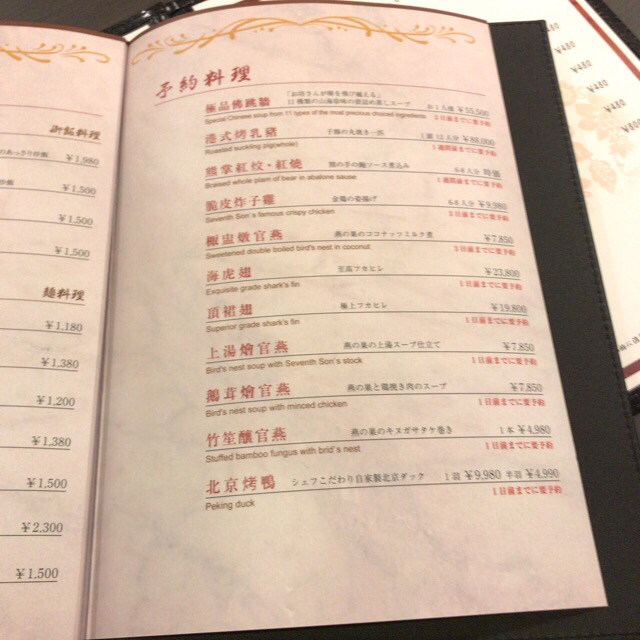 御飯料理
¥1,980
¥1,500
¥1,500
¥1,500
麺料理
¥1,180
¥1,380
¥1,200
¥1,380
¥1,500
¥2,300
¥1,500
予約料理
極品佛跳牆 「お坊さんが垣を飛び越える」
11種類の山海珍味の壺詰め蒸しスープ お1人様 ¥35,500
Special Chinese soup from 11 types of the most precious choiced ingredients 3日前までに要予約
港式烤乳豬 子豚の丸焼き一匹 1頭 12人分 ¥88,000
Roasted suckling pig(whole) 1週間前までに要予約
熊掌紅炆・紅燒 熊の手の鮑ソース煮込み 6-8人分 時価
Braised whole plam of bear in abalone sause 1週間前までに要予約
脆皮炸子雞 金鶏の姿揚げ 6-8人分 ¥9,980
Seventh Son's famous crispy chicken 3日前までに要予約
椰盅燉官燕 燕の巣のココナッツミルク煮 ¥7,850
Sweetened double boiled bird's nest in coconut 2日前までに要予約
海虎翅 至高フカヒレ ¥23,800
Exquisite grade shark's fin 1日前までに要予約
頂裙翅 極上フカヒレ ¥19,800
Superior grade shark's fin 1日前までに要予約
上湯燴官燕 燕の巣の上湯スープ仕立て ¥7,850
Bird's nest soup with Seventh Son's stock 1日前までに要予約
鵝茸燴官燕 燕の巣と鶏挽き肉のスープ ¥7,850
Bird's nest soup with minced chicken 1日前までに要予約
竹笙釀官燕 燕の巣のキヌガサタケ巻き 1本 ¥4,980
Stuffed bamboo fungus with brid's nest 1日前までに要予約
北京烤鴨 シェフこだわり自家製北京ダック 1羽 ¥9,980 半羽 ¥4,990
Peking duck 1日前までに要予約
¥480
¥480
¥480
¥480